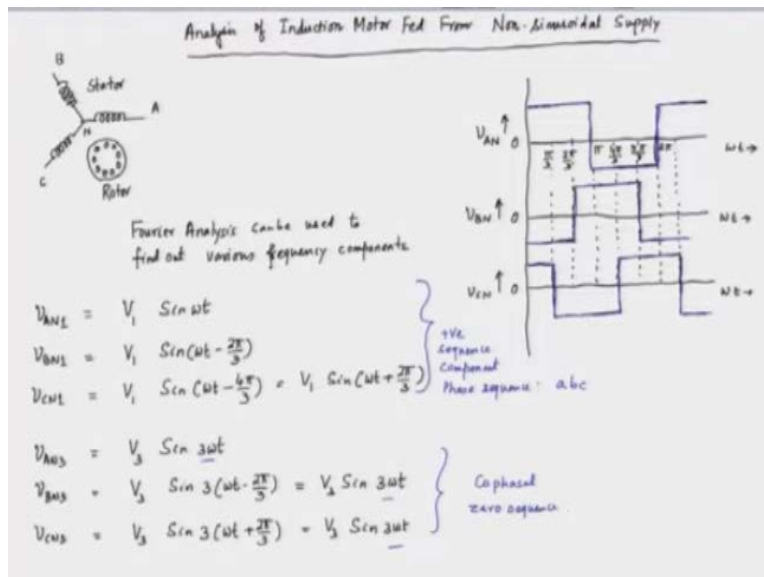 Analysis of Induction Motor Fed From Non-Sinusoidal Supply
B
Stator
A
N
C
Rotor
Fourier Analysis can be used to
find out various frequency components
V_AN1 = V_1 Sin ωt
V_BN1 = V_1 Sin(ωt - 2π/3)
V_CN1 = V_1 Sin (ωt - 4π/3) = V_1 Sin (ωt + 2π/3)
+ve
sequence
component
Phase sequence: abc
V_AN3 = V_3 Sin 3ωt
V_BN3 = V_3 Sin 3(ωt - 2π/3) = V_3 Sin 3ωt
V_CN3 = V_3 Sin 3(ωt + 2π/3) = V_3 Sin 3ωt
Cophasal
zero sequence
V_AN ↑ 0
π/3 2π/3 π 4π/3 5π/3 2π ωt→
V_BN ↑ 0 ωt→
V_CN ↑ 0 ωt→